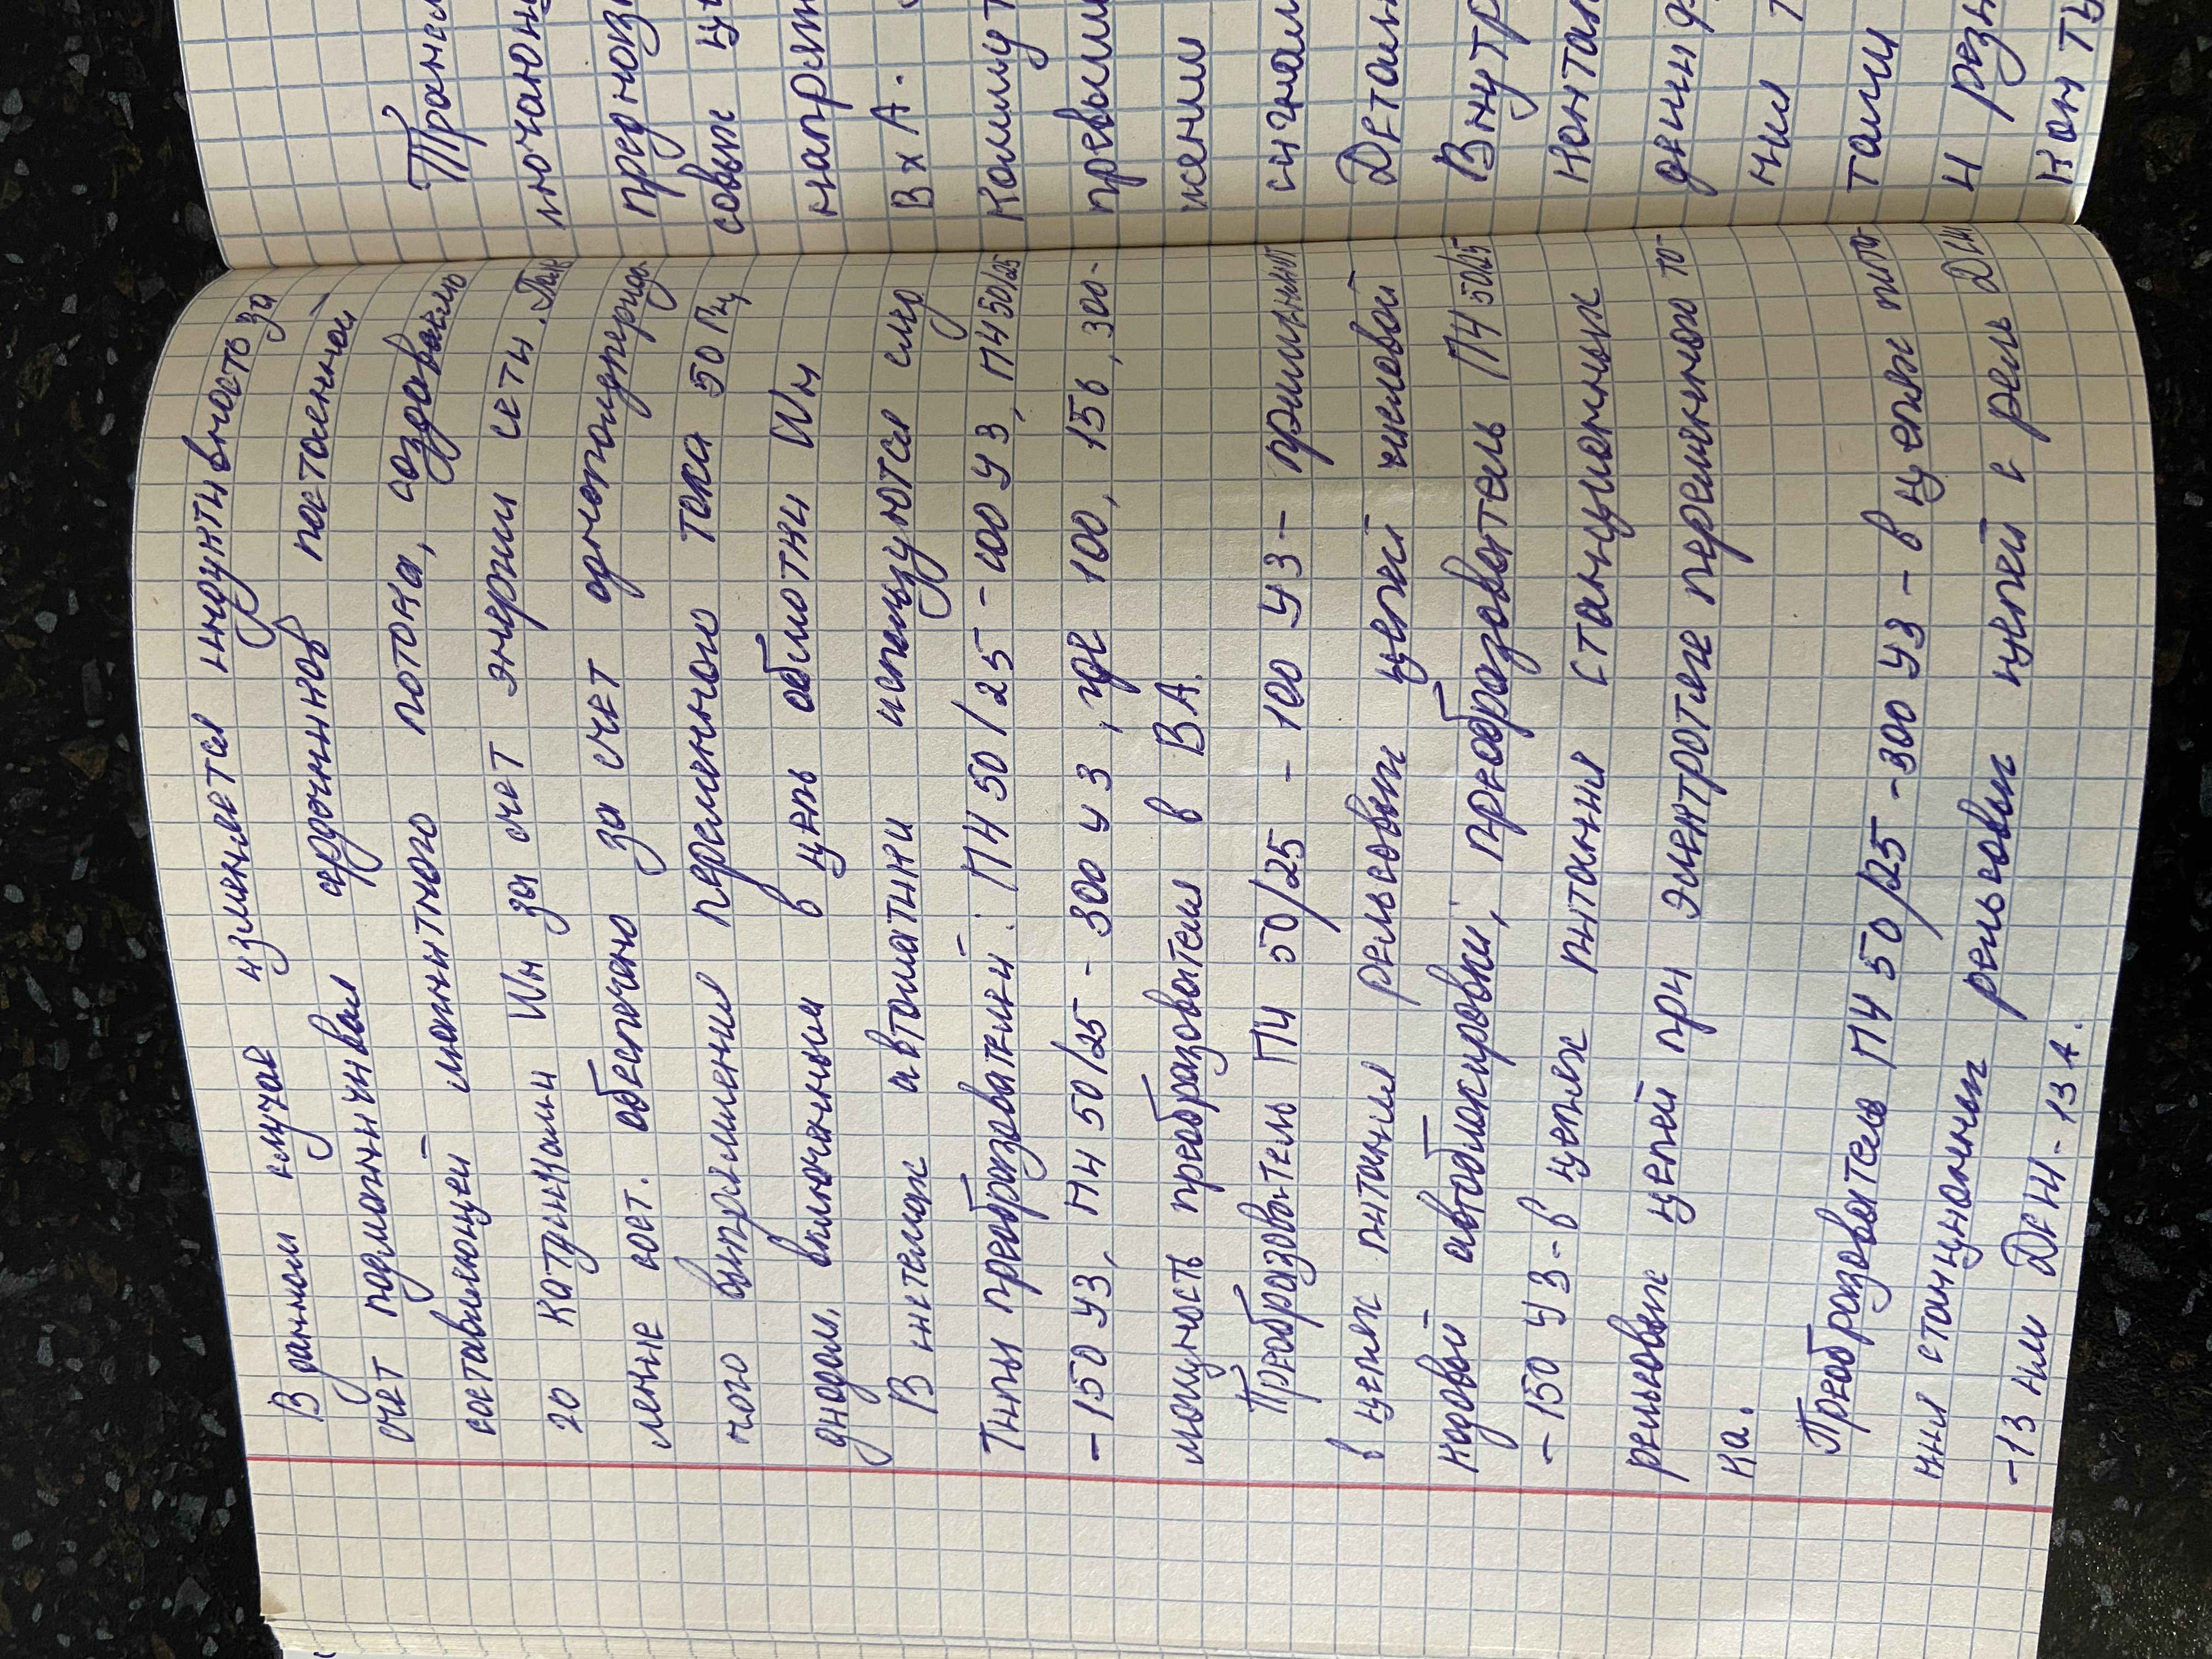 В данном случае изменяется индуктивность за
счет подмагничивал сердочников постоенной
составляющей магнитного потока, создаваемо
го катушками Wн за счет энергии сети. Так
ление сост. обеспечено за счет однополупериод-
ного выпрямления переменного тока 50 Гц
диодом, включенным в цепь обмотки Wн
В системах автоматики используются след
Типы преобразователей: ПЧ 50/25 - 100 У3, ПЧ 50/25
- 150 У3, ПЧ 50/25 - 300 У3, где 100, 150, 300-
мощность преобразователя в ВА.
Преобразователь ПЧ 50/25 - 100 У3 - применяют
в цепях питания рельсовых цепей числовой
кодовой автоблокировки, преобразователь ПЧ 50/25
- 150 У3 - в цепях питания станционных
рельсовых цепей при электротяге переменного то-
ка.
Преобразователь ПЧ 50/25 - 300 У3 - в цепях пита
ния станционых рельсовых цепей с реле ДСШ
-13 или ДСШ-13А.
Трансм
ключающ
предназн
совых це
напряж
ВхА.
Коммут
превыш
жении
сигнал
Детальн
Внутр
контак
ния т
тами
и разн
кон ты